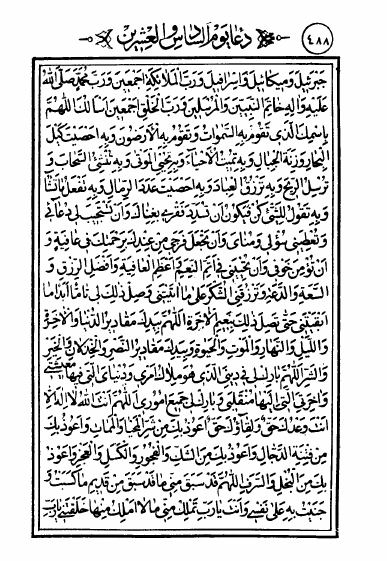 ٤٨٨
دعاء يوم السادس والعشرين
جبرئيل وميكائيل واسرافيل ورب الملائكة اجمعين ورب محمد صلى الله
عليه واله خاتم النبيين والمرسلين ورب الخلق اجمعين اسالك اللهم
باسمك الذى تقوم به السموات وتقوم به الارضون وبه احصيت كيل
البحار وزنة الجبال وبه تميت الاحياء وبه تحيى الموتى وبه تنشئ السحاب و
ترسل الريح وبه ترزق العباد وبه احصيت عدد الرمال وبه تفعل ما تشاء
وبه تقول للشئ كن فيكون ان تسد فقرى بغناك وان تستجيب لى دعائى
وتعطينى سؤلى ومناى وان تجعل فرجى من عندك برحمتك فى عافية و
ان تؤمن خوفى وان تحيينى فى اتم النعم واعظم العافية وافضل الرزق و
السعة والدعة وترزقنى الشكر على ما اتيتنى وصل ذلك لى تاما ابدا ما
ابقيتنى حتى تصل ذلك بنعيم الاخرة اللهم بيدك مقادير الدنيا والاخرة
والليل والنهار والموت والحيوة وبيدك مقادير النصر والخذلان والخير
والشر اللهم بارك لى فى دينى الذى هو ملاك امرى ودنياى التى فيها معيشتى
واخرتى التى اليها منقلبى وبارك لى جميع امورى اللهم انت الله لا اله الا
انت وعدك حق ولقاؤك حق اعوذ بك من شر المحيا والممات واعوذ بك
من فتنة الدجال واعوذ بك من الشك والفجور والكسل والعجز واعوذ
بك من البخل والسرف اللهم قد سبق منى ما قد سبق من قديم ما كسبت و
جنيت به على نفسى وانت يا رب تملك منى ما لا املك منها خلقتنى يا رب